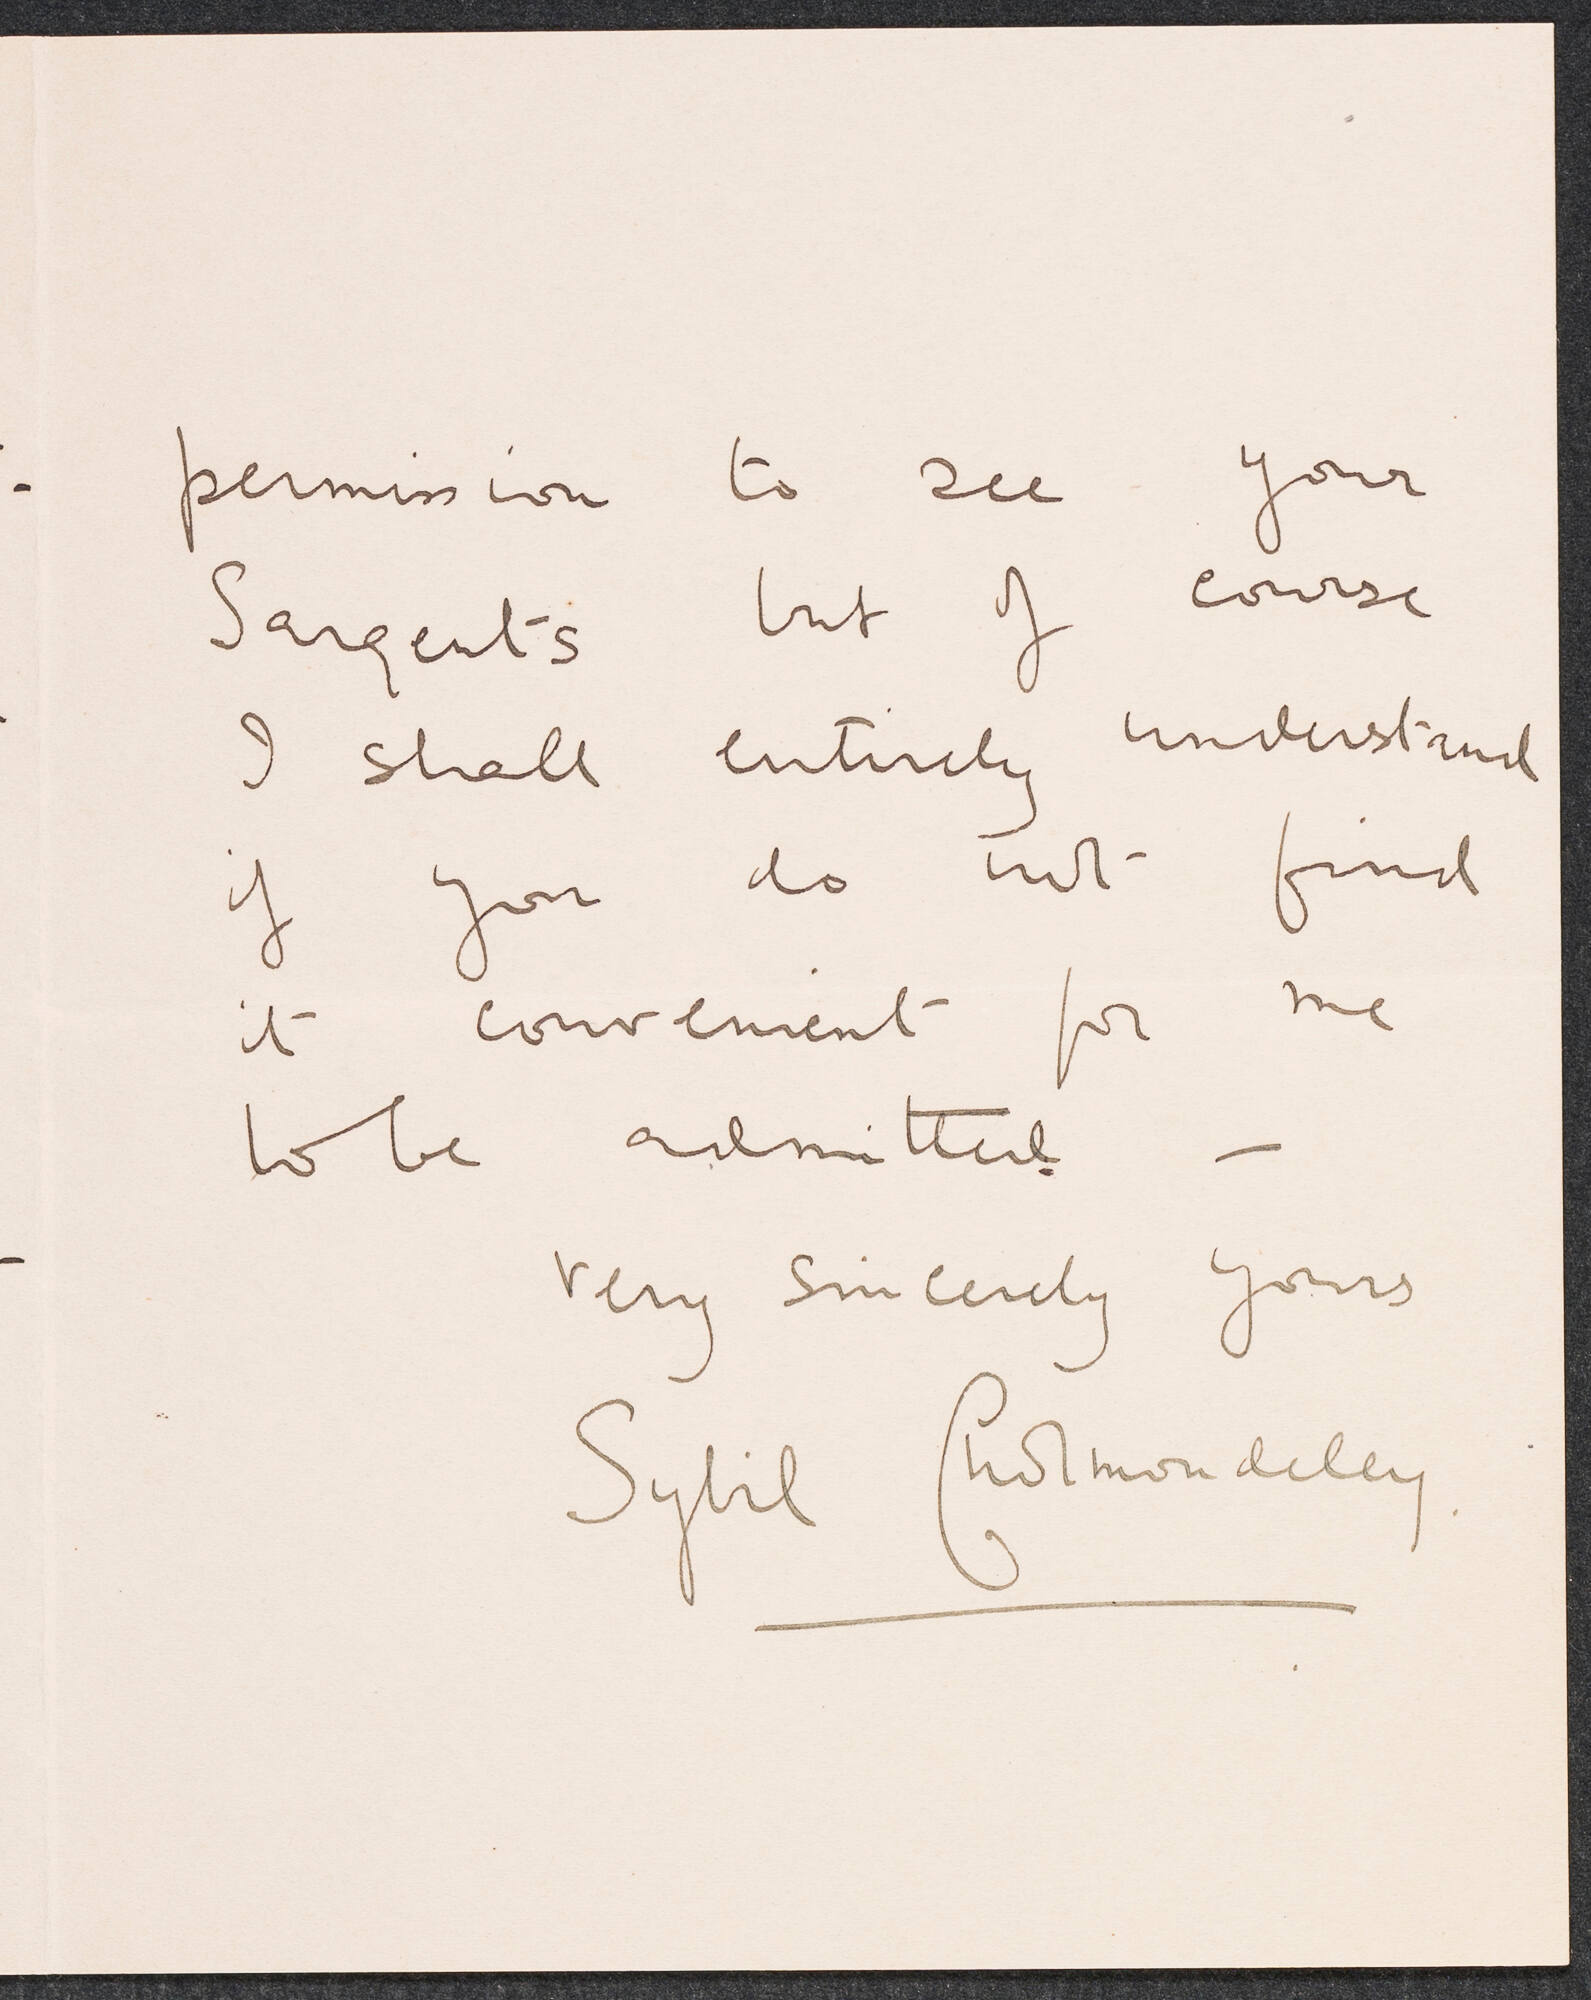 permission to see your
Sargents but of course
I shall entirely understand
if you do not find
it convenient for me
to be admitted. —
very sincerely yours
Sybil Cholmondeley.